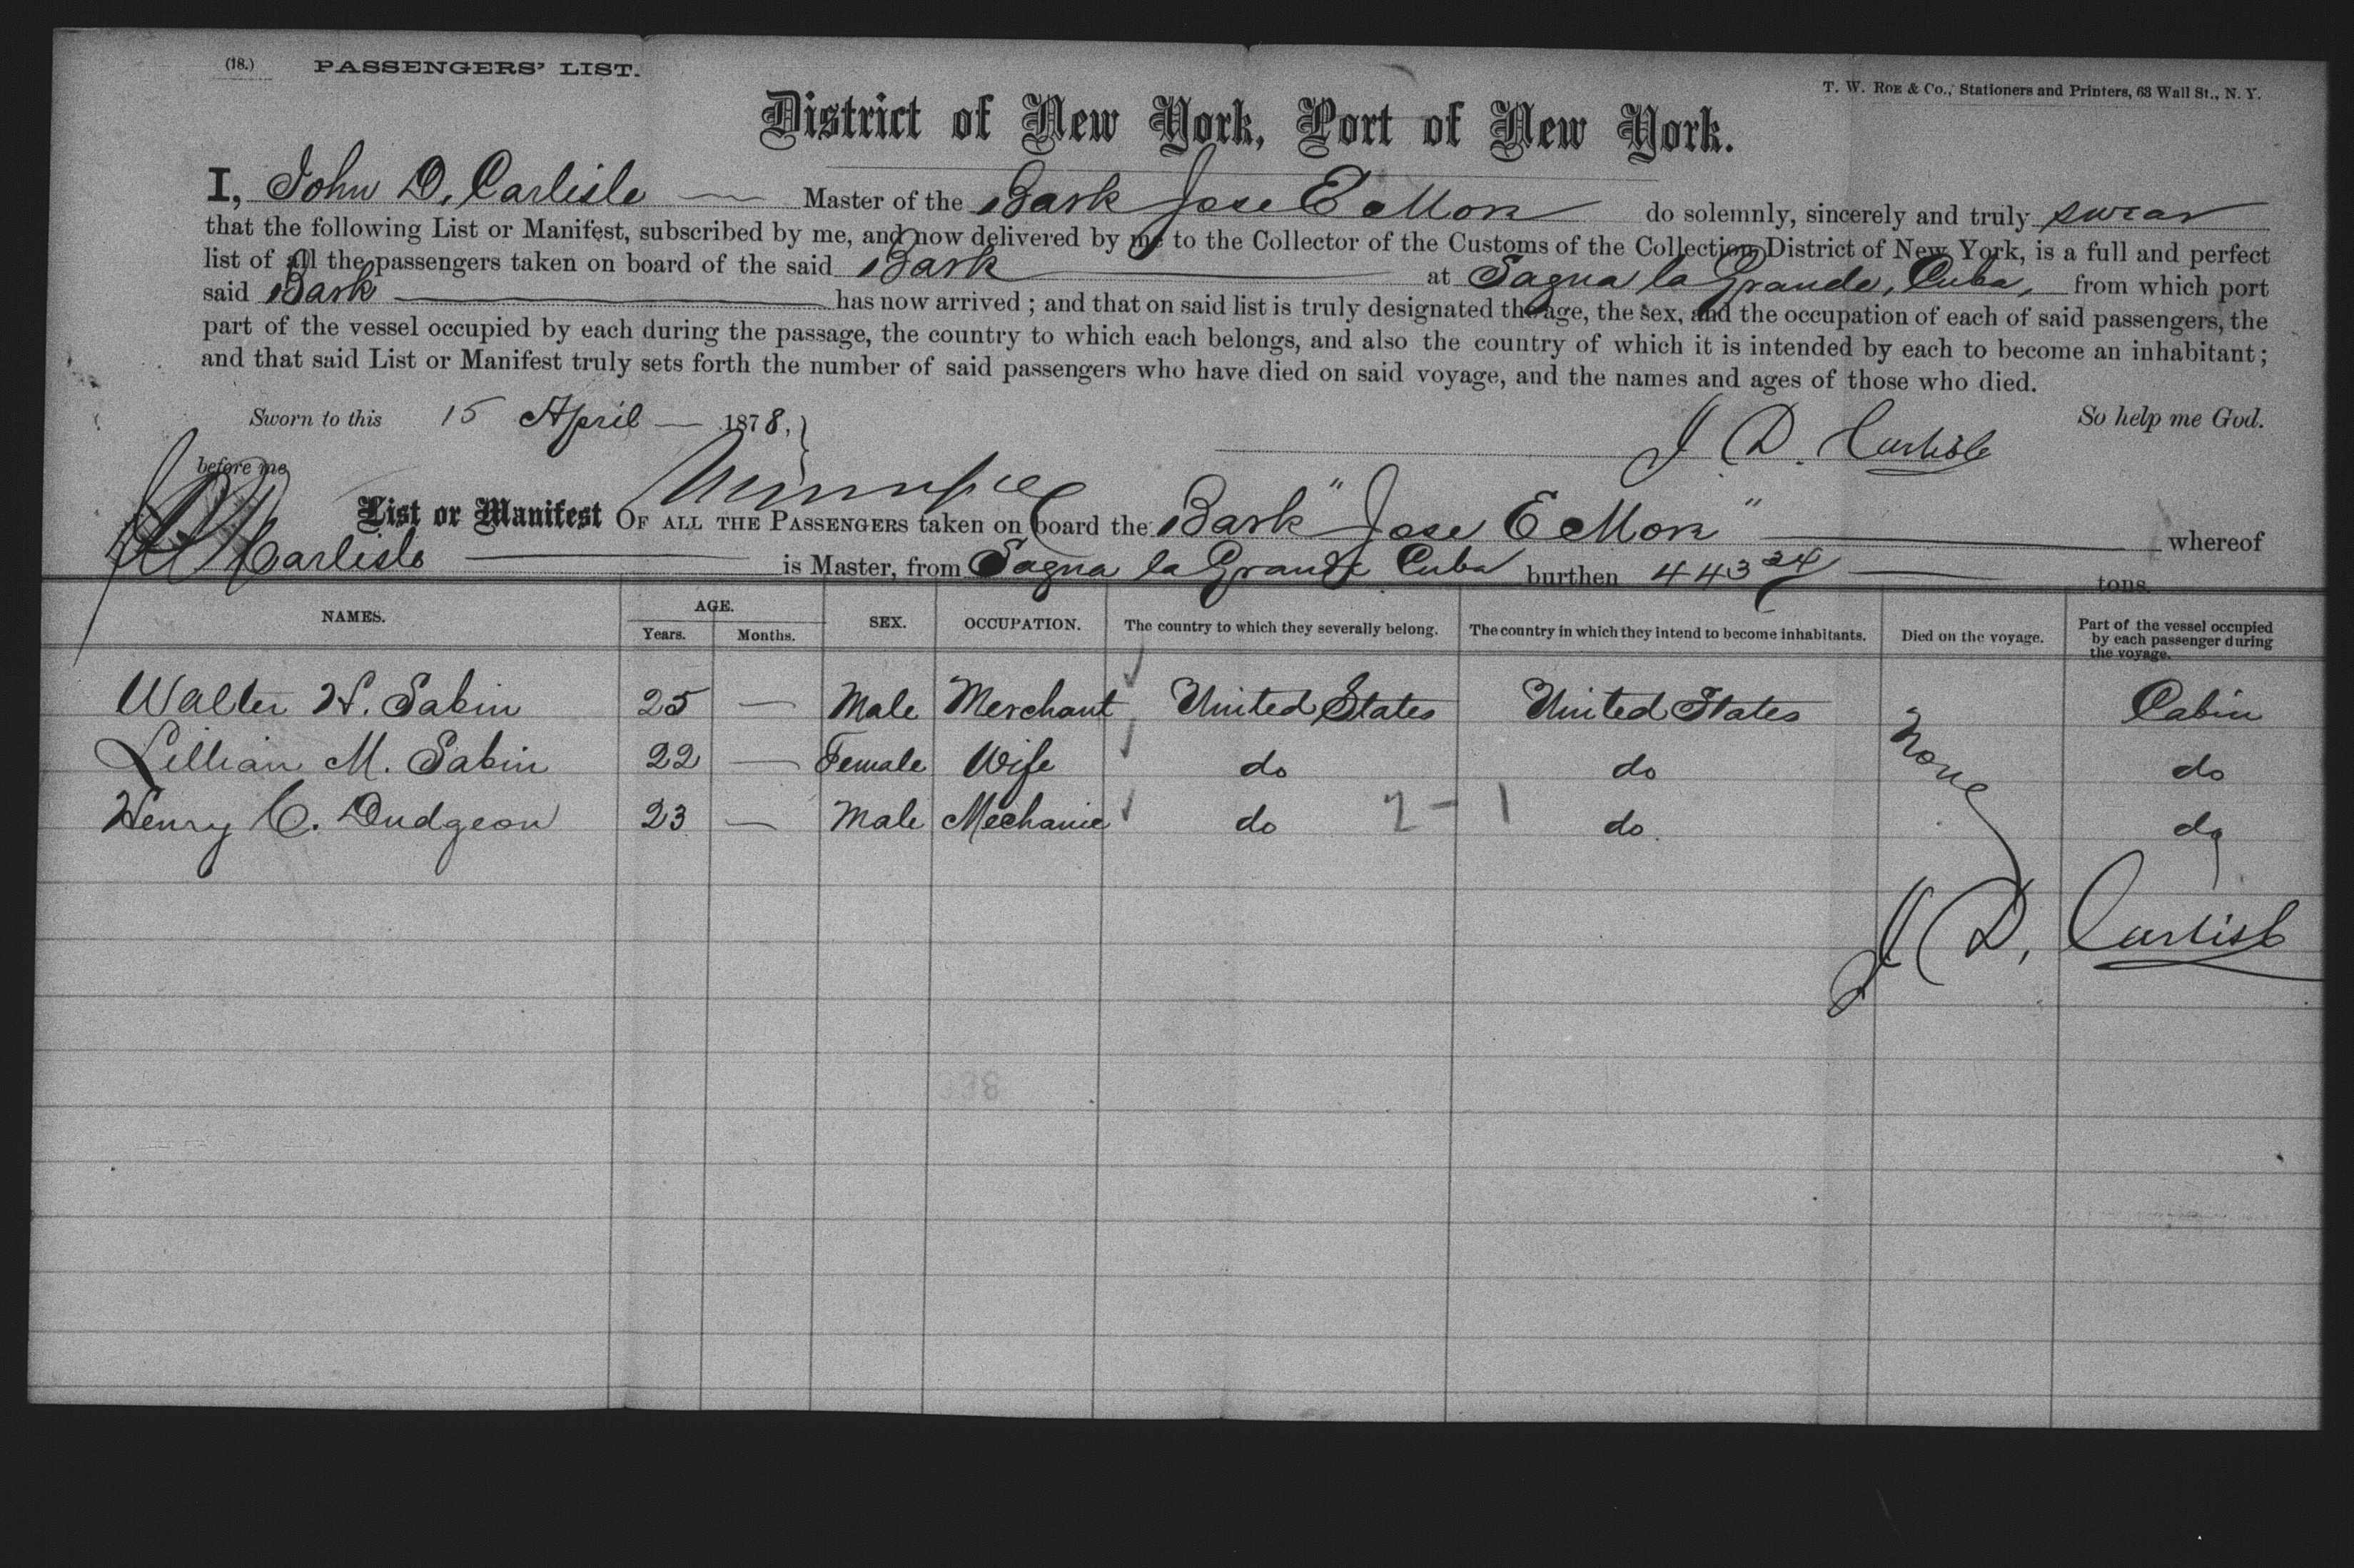 (18.) PASSENGERS' LIST.
T. W. Roe & Co., Stationers and Printers, 63 Wall St., N. Y.
District of New York, Port of New York.
I, John D. Carlisle Master of the Bark Jose E More do solemnly, sincerely and truly swear
that the following List or Manifest, subscribed by me, and now delivered by me to the Collector of the Customs of the Collection District of New York, is a full and perfect
list of all the passengers taken on board of the said Bark at Sagua la Grande, Cuba, from which port
said Bark has now arrived; and that on said list is truly designated the age, the sex, and the occupation of each of said passengers, the
part of the vessel occupied by each during the passage, the country to which each belongs, and also the country of which it is intended by each to become an inhabitant;
and that said List or Manifest truly sets forth the number of said passengers who have died on said voyage, and the names and ages of those who died.
Sworn to this 15 April 1878, So help me God.
J D. Carlisle
before me
List or Manifest OF ALL THE PASSENGERS taken on board the Bark "Jose E More" whereof
Carlisle is Master, from Sagua la Grande Cuba burthen 443 24 tons.
NAMES. AGE. Years. Months. SEX. OCCUPATION. The country to which they severally belong. The country in which they intend to become inhabitants. Died on the voyage. Part of the vessel occupied by each passenger during the voyage.
Walter H. Sabin 25 — Male Merchant ✓ United States United States None Cabin
Lillian M. Sabin 22 — Female Wife ✓ do do do
Henry C. Dudgeon 23 — Male Mechanic ✓ do 2 - 1 do do
J D. Carlisle